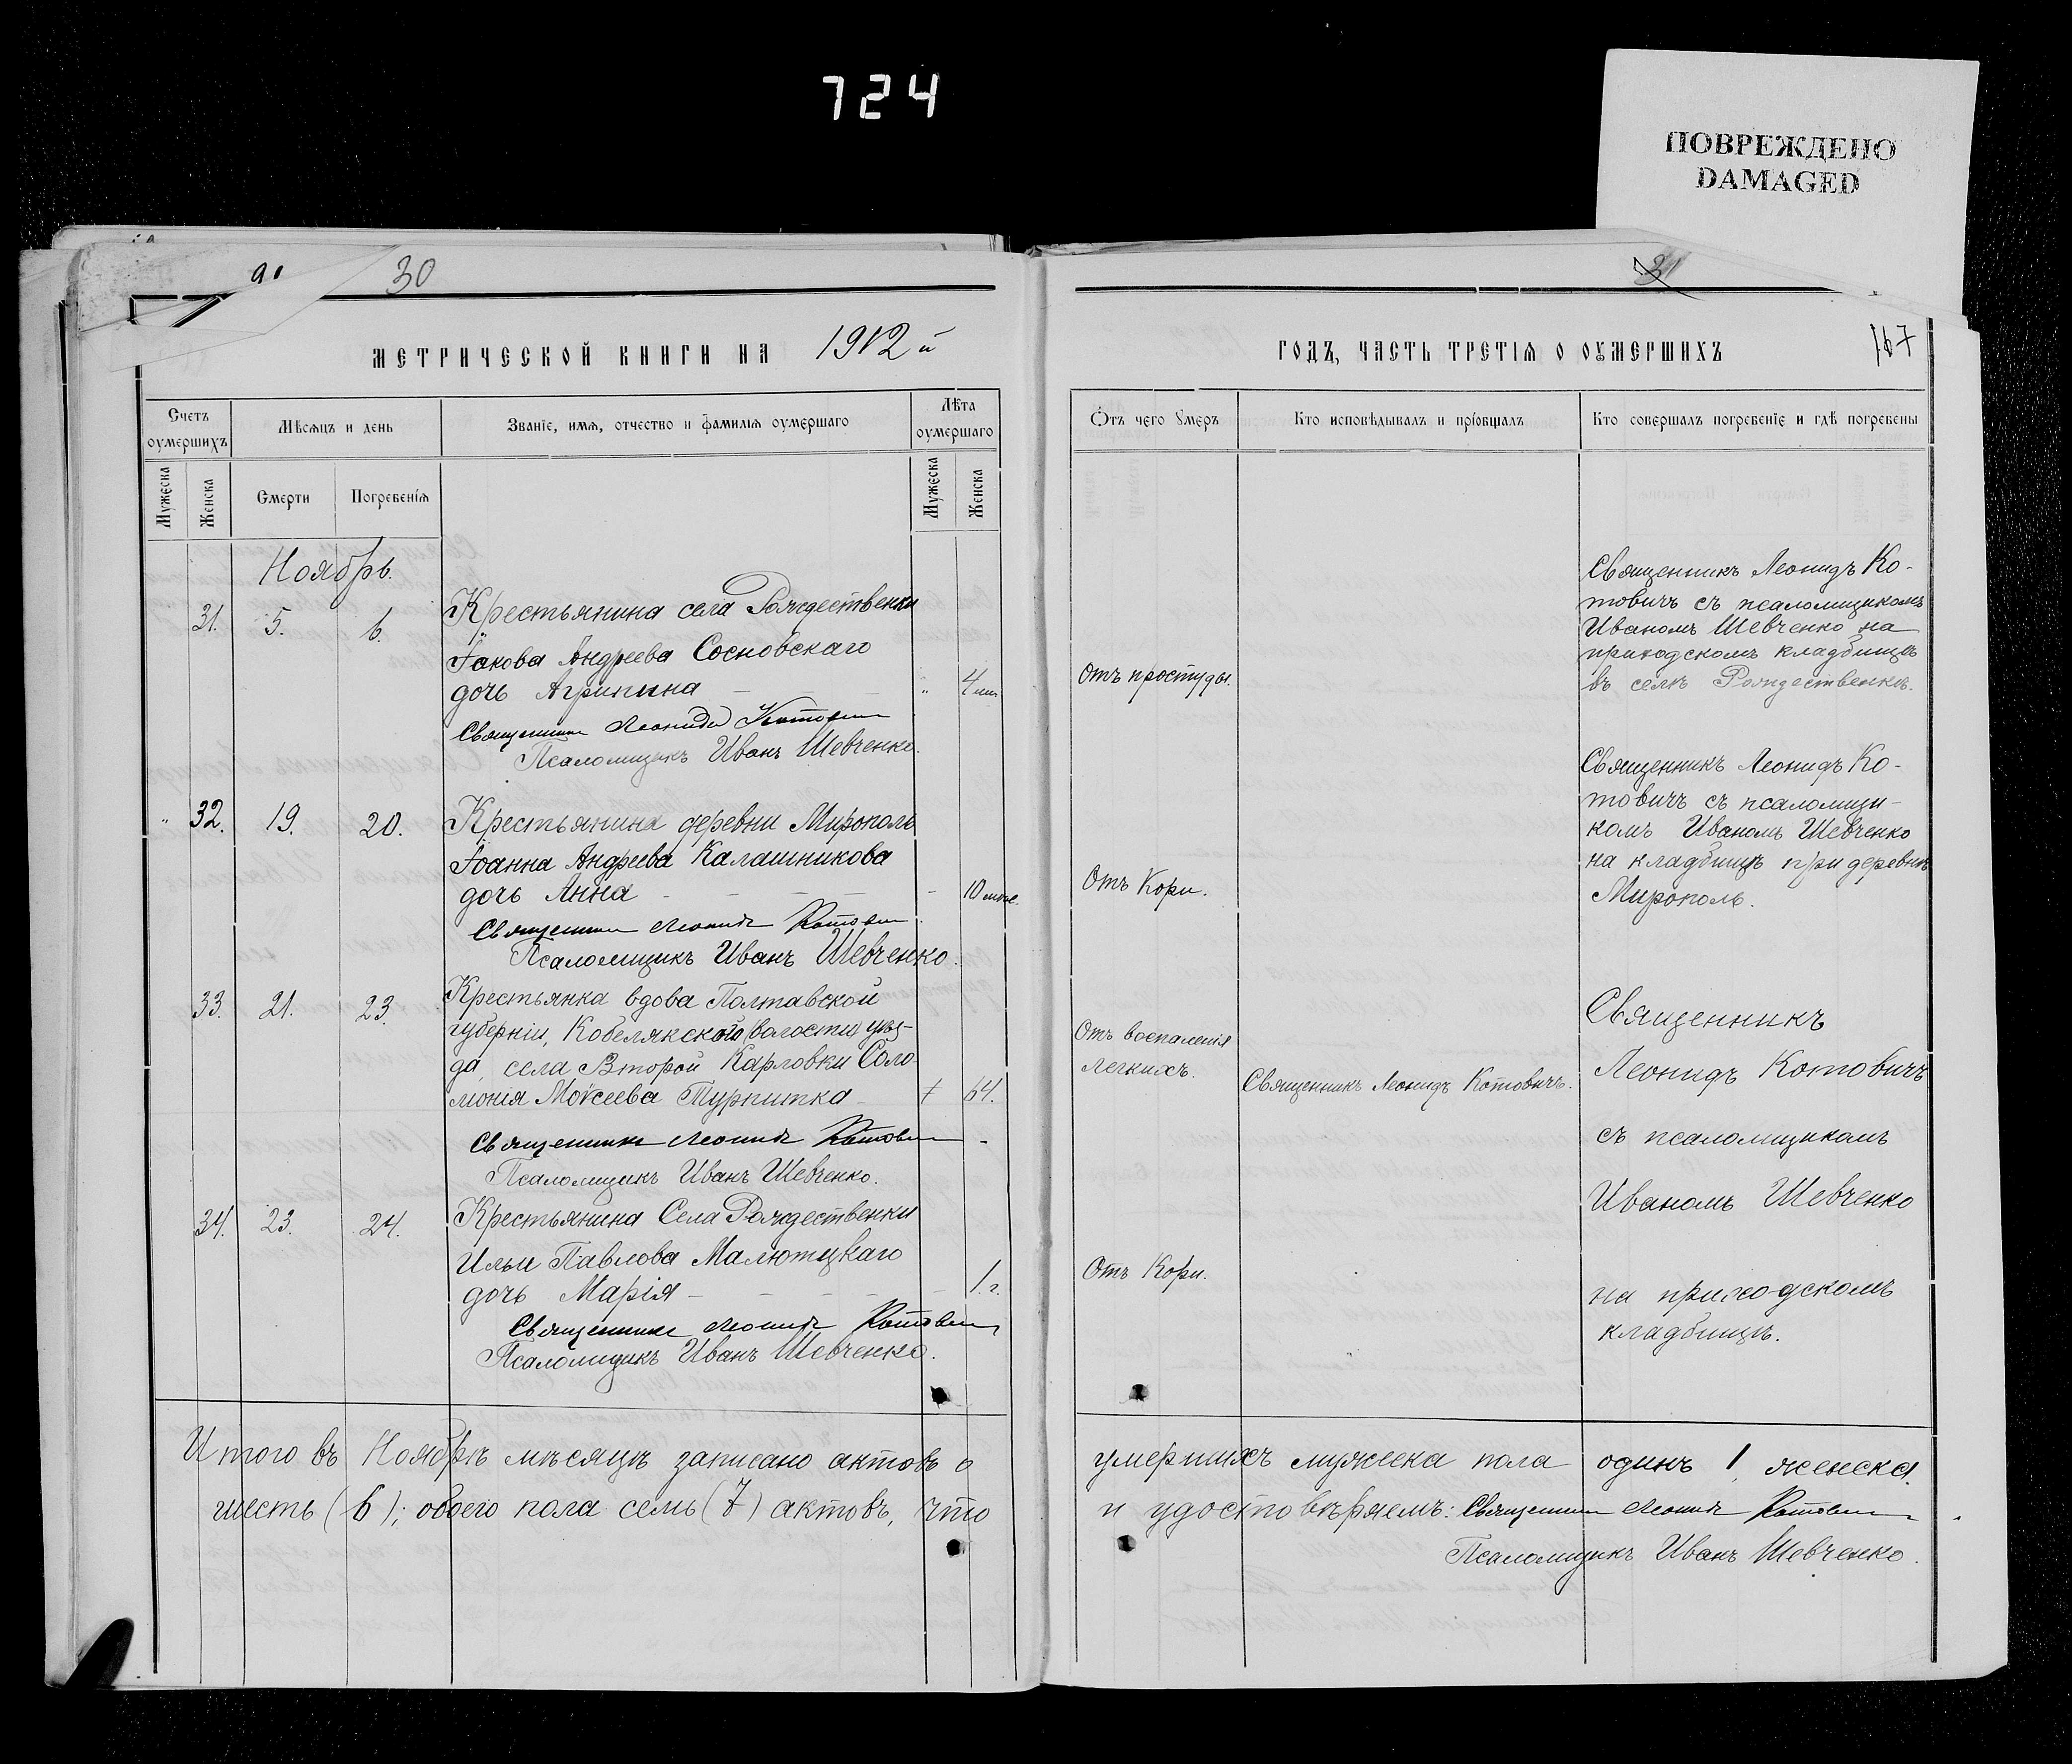 724
ПОВРЕЖДЕНО
DAMAGED
30
31
МЕТРИЧЕСКОЙ КНИГИ НА 1912 й
ГОДЪ, ЧАСТЬ ТРЕТІЯ О ОУМЕРШИХЪ
167
Счетъ оумершихъ
Мѣсяцъ и день
Званіе, имя, отчество и фамилія оумершаго
Лѣта оумершаго
Мужеска
Женска
Смерти
Погребенія
Мужеска
Женска
Отъ чего умеръ
Кто исповѣдывалъ и пріобщалъ
Кто совершалъ погребеніе и гдѣ погребены
Ноябрь.
31. 5. 6. Крестьянина села Рождественки
Іакова Андреева Сосновскаго
дочь Агрипина „ 4
Священникъ Леонидъ Котовичъ
Псаломщикъ Иванъ Шевченко.
Отъ простуды.
Священникъ Леонидъ Ко-
товичъ съ псаломщикомъ
Иваномъ Шевченко на
приходскомъ кладбищѣ
въ селѣ Рождественкѣ.
„ 32. 19. 20. Крестьянина деревни Мирополь
Іоанна Андреева Калашникова
дочь Анна - 10 мѣс.
Священникъ Леонидъ Котовичъ
Псаломщикъ Иванъ Шевченко.
Отъ Кори.
Священникъ Леонидъ Ко-
товичъ съ псаломщи-
комъ Иваномъ Шевченко
на кладбищѣ при деревнѣ
Мирополь.
33. 21. 23. Крестьянка вдова Полтавской
губерніи, Кобелякскаго (волости) уѣз-
да, села Второй Карловки Соло-
монія Моѵсеева Турпитка 64.
Священникъ Леонидъ Котовичъ
Псаломщикъ Иванъ Шевченко.
Отъ воспаленія
легкихъ.
Священникъ Леонидъ Котовичъ.
Священникъ
Леонидъ Котовичъ
съ псаломщикомъ
Иваномъ Шевченко
на приходскомъ
кладбищѣ.
34. 23. 24. Крестьянина Села Рождественки
Ильи Павлова Малютицкаго
дочь Марія - 1 г.
Священникъ Леонидъ Котовичъ
Псаломщикъ Иванъ Шевченко.
Отъ Кори.
Итого въ Ноябрѣ мѣсяцѣ записано актовъ о
умершихъ мужеска пола одинъ 1, женска
шесть (6); обоего пола семь (7) актовъ, что
и удостовѣряемъ: Священникъ Леонидъ Котовичъ
Псаломщикъ Иванъ Шевченко.